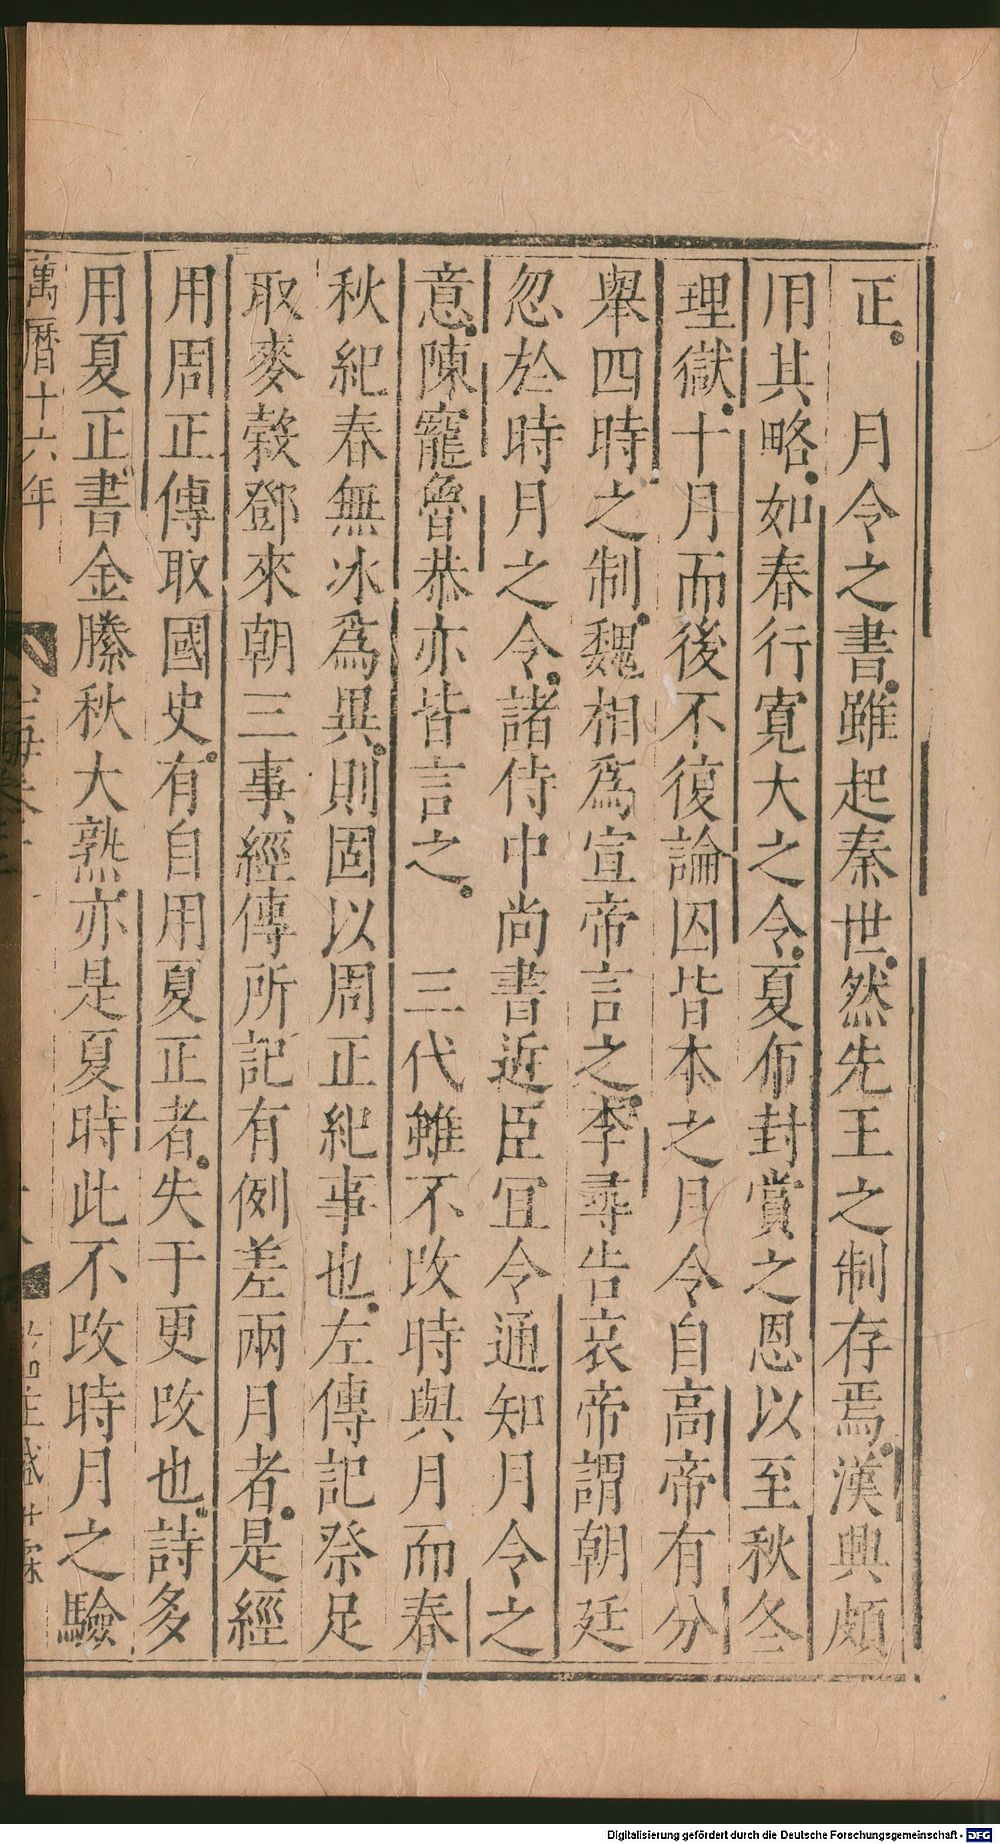 正。 月令之書。雖起秦世。然先王之制存焉。漢興頗
用其略。如春行寬大之令。夏布封賞之恩以至秋冬
理獄。十月而後不復論囚皆本之月令自高帝有分
舉四時之制。魏相爲宣帝言之。李尋告哀帝謂朝廷
忽於時月之令。諸侍中尚書近臣冝令通知月令之
意。陳寵魯恭亦皆言之。 三代雖不改時與月而春
秋紀春無冰爲異。則固以周正紀事也。左傳記祭足
取麥糓鄧來朝三事、經傳所記有例差兩月者。是經
用周正傳取國史。有自用夏正者。失于更改也。詩多
用夏正書金縢秋大熟亦是夏時此不改時月之驗
萬曆十六年
Digitalisierung gefördert durch die Deutsche Forschungsgemeinschaft - DFG